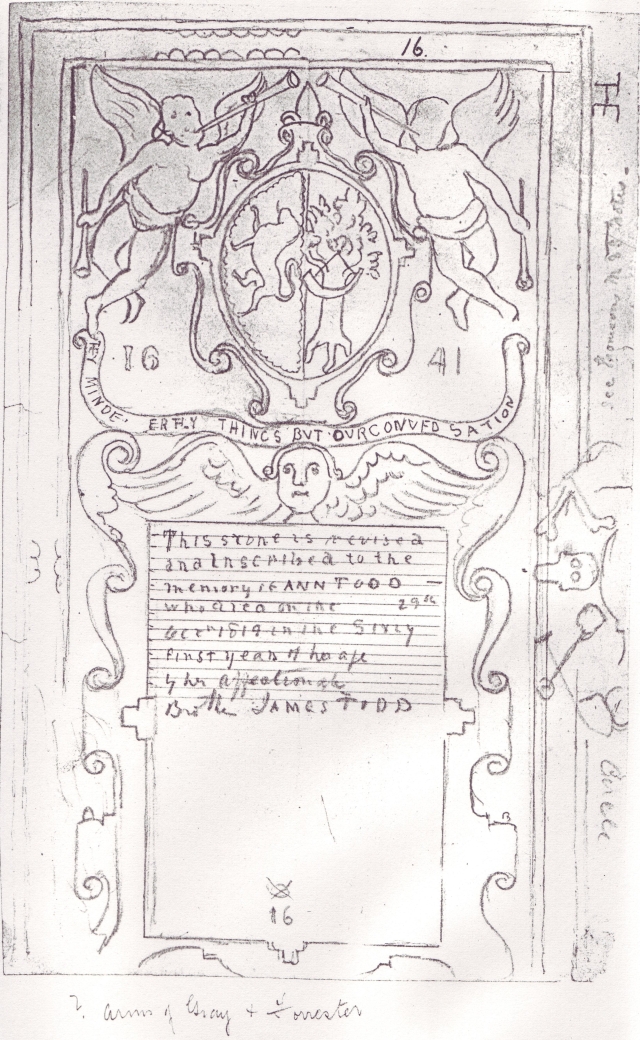 16.
THE
16 41
MINDE · ERTLY THINGS BVT · OVR CONVERSATION
This stone is revised
and Inscribed to the
memory of ANN TODD —
who died on the 29th
Octr 1819 in the Sixty
first year of her age
by her affectionate
Brother JAMES TODD
16
? arms of Gray & Forrester